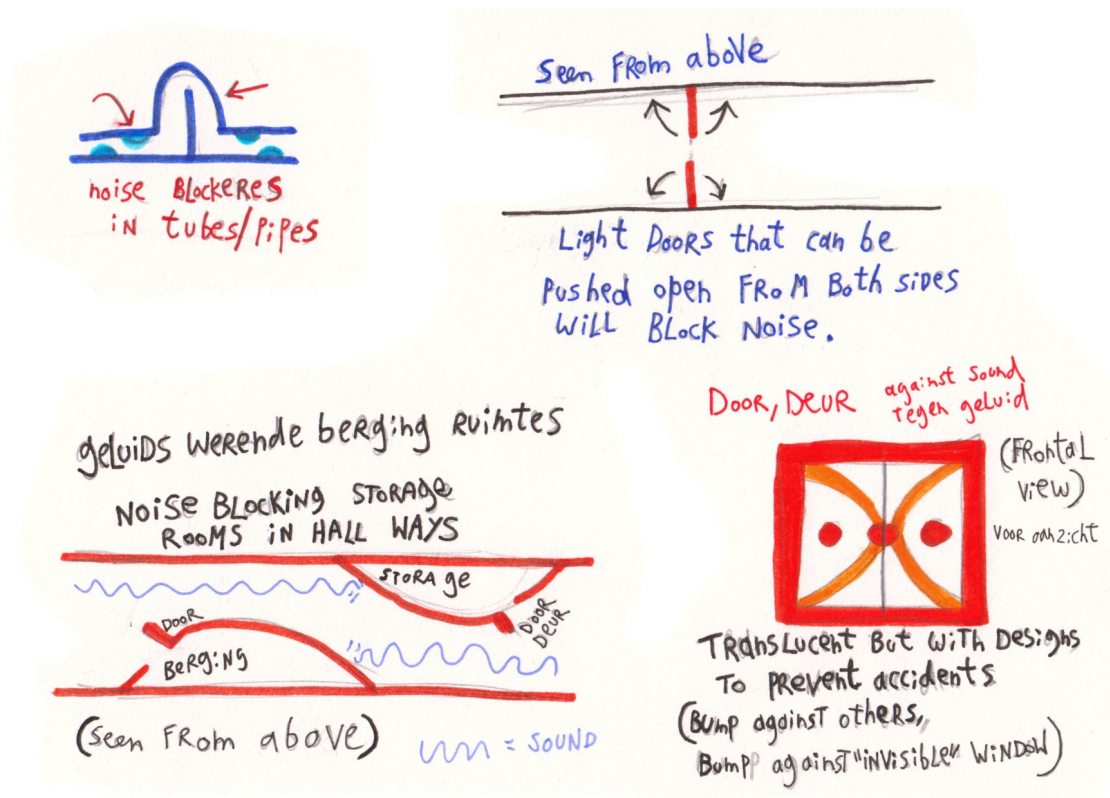 noise BLockeres
iN tubes/PiPes
Seen FRom above
Light DooRs that can be
Pushed open FRoM Both siDes
WiLL BLock Noise.
geLuiDs weRende beRging Ruimtes
NoiSe BLocKiNg SToRAge
RooMs iN HALL WAYS
SToRA ge
DooR
DeuR
DooR
BeRgiNg
(Seen FRom above)
= SOUND
DooR, DeuR
against Sound
tegen geluid
(FRontaL
view)
VooR aanzicht
TRansLucent But With Designs
To PRevent accidents
(Bump against others,
Bumpp against "iNVisibLe" WiNDoW)